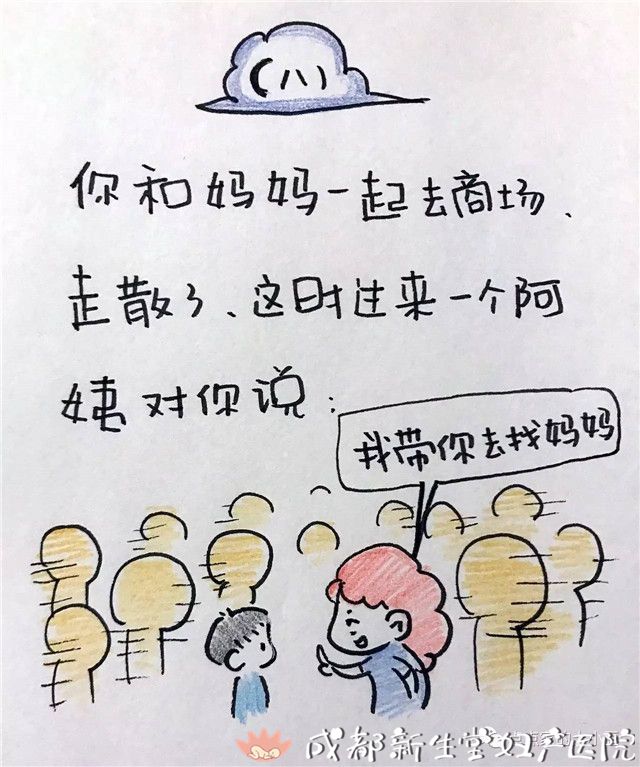 （八）
你和妈妈一起去商场、
走散了、这时过来一个阿
姨对你说：
我带你去找妈妈
成都新生堂妇产医院